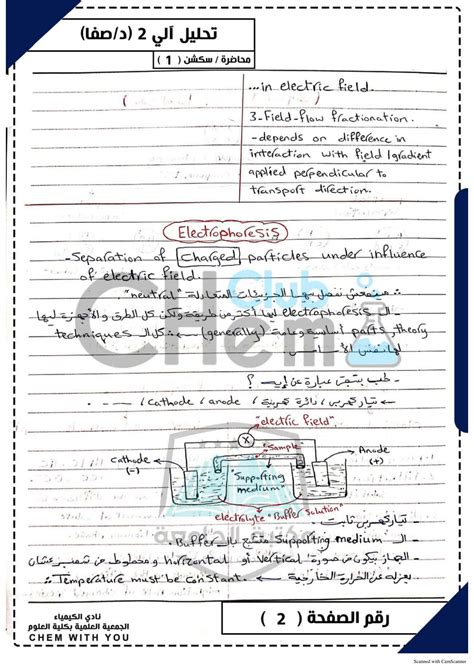 تحليل آلي 2 (د/صفا)
محاضرة / سكشن ( 1 )
...in electric field.
3-Field-flow fractionation.
-depends on difference in
interaction with field/gradient
applied perpendicular to
transport direction.
Electrophoresis
-Separation of Charged particles under influence
of electric field.
"neutral"
الـ electrophoresis لها أكتر من طريقة ولكن كل الطرق والأجهزة ليها
parts أساسية وعامة (generally) theory
techniques
لها نفس الأساس.
- طب بتبقى عبارة عن إيه؟
- تيار كهربي / دائرة كهربية / cathode / anode / ....
"electric field"
X
Cathode
(-)
"Sample"
Anode
(+)
"Supporting
medium"
electrolyte "Buffer solution"
- تيار كهربي ثابت.
- الـ Supporting medium متشبع بالـ Buffer.
- الجهاز بيكون في صورة Vertical أو horizontal و محطوط في
عشان
بعزله عن الحرارة الخارجية ← Temperature must be constant
نادي الكيمياء
الجمعية العلمية بكلية العلوم
CHEM WITH YOU
رقم الصفحة ( 2 )
CHem Club
Scanned with CamScanner